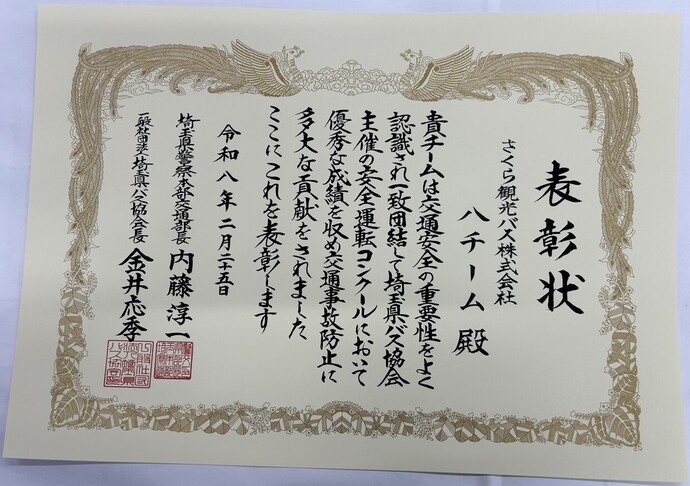 表彰状
さくら観光バス株式会社
八チーム 殿
貴チームは交通安全の重要性をよく
認識され一致団結して埼玉県バス協会
主催の安全運転コンクールにおいて
優秀な成績を収め交通事故防止に
多大な貢献をされました
ここにこれを表彰します
令和八年二月二十五日
埼玉県警察本部交通部長 内藤淳一
一般社団法人埼玉県バス協会長 金井応季